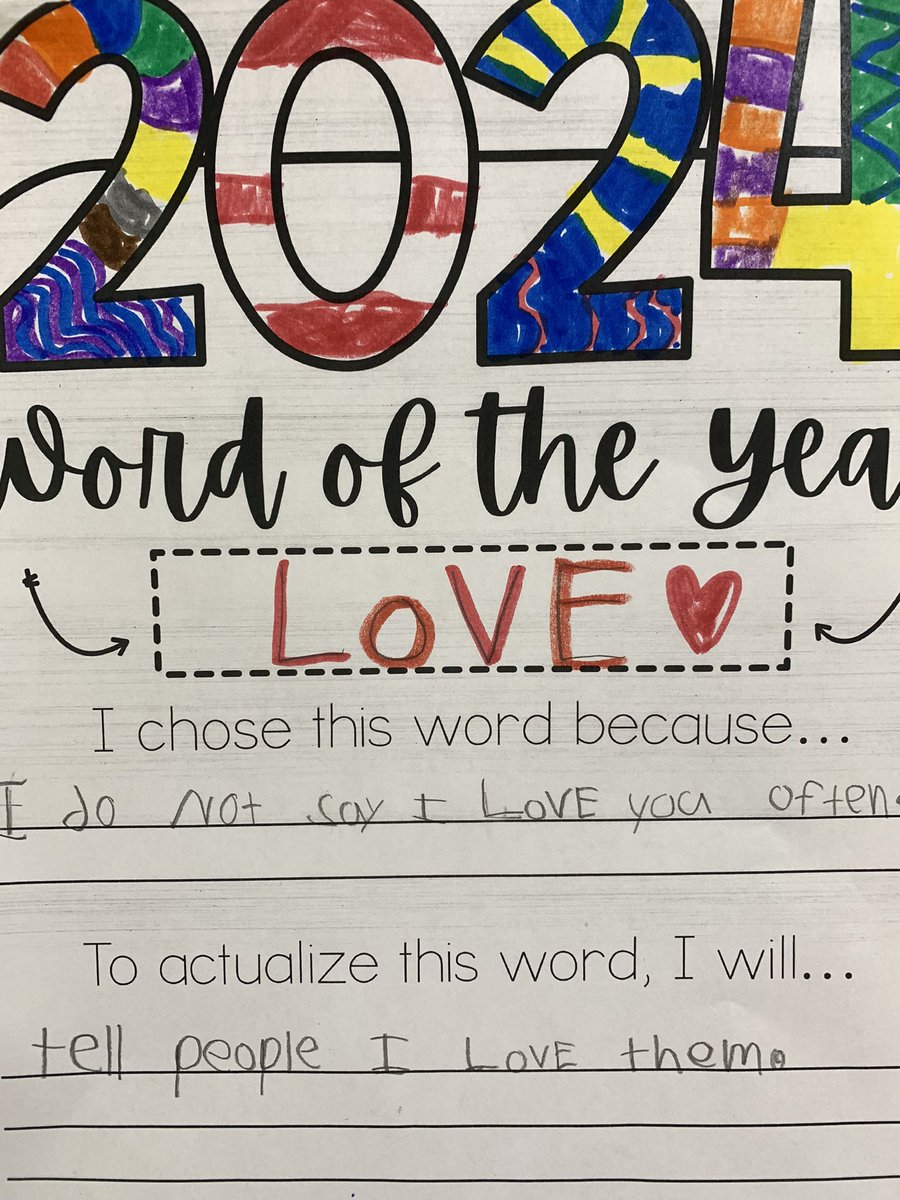 2024
Word of the Yea
LOVE
I chose this word because...
I do Not say I LOVE you often.
To actualize this word, I will...
tell people I LOVE them.